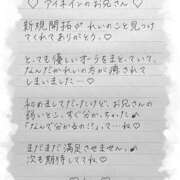 ♡ アイネインのお兄さん ♡
新規開拓が れいのこと見つけ
てくれてありがとう。♡
とっても優しいオーラをまとていて、
なんだかれいの方が癒されて
しまいました…♡
和めましてだったけど、お兄さんの
弱いところ、すぐ分かっちゃった♪
「なんで分かるの!?」って…ね♡
まだまだ満足させません♪
次も期待しててね♡